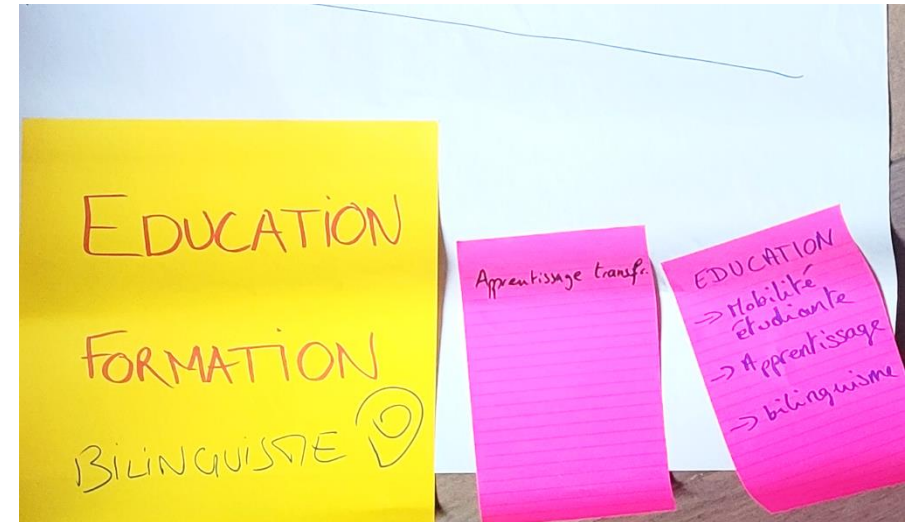 EDUCATION
FORMATION
BILINGUISME
Apprentissage transfr.
EDUCATION
-> Mobilité
étudiante
-> Apprentissage
-> bilinguisme